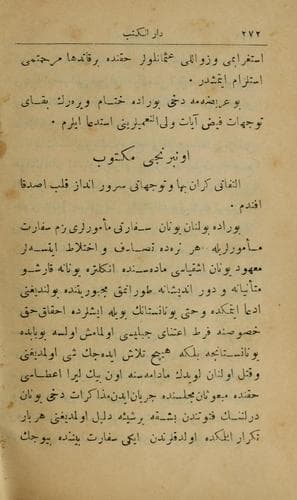 ٢٧٢ دار الكتب
استغرابمى وزواللى عثمانلولر حقنده برقاتدها مرحمتمى
استلزام ایتمشدر .
بو عریضه مه دخی بوراده ختام ویره رك بقای
توجهات فیض آیات ولی النعمیلرینی استدعا ایلرم .
اونبرنجی مكتوب
التفاتی كران بها وتوجهاتی سرور انداز قلب اصدقا
افندم .
بوراده بولنان یونان سفارتی مأمورلری بزم سفارت
مأمورلریله هر نره ده تصادف و اختلاط ایتسه لر
معهود یونان اشقیاسی ماده سنده انكلتره یونانه قارشو
متأنیانه و دور اندیشانه طورانمق مجبوریتنده بولندیغنی
ادعا ایتمكده وحتی یونانستانك بویله ایشلرده احقاق حق
خصوصنه فرط اعتنای جبلیسی اولمامش اولسه بوبابده
یونانستانجه بلكه هیچ تلاش ایده جك شی اولمدیغنی
وقتل اولنان لویدك مادامه سنه اون بیك لیرا اعطاسی
حقنده مبعوثان مجلسنده جریان ایدن مذاكرات دخی یونان
درلتنك فتوتندن بشقه برشیئه دلیل اولمدیغنی هر بار
تكرار ایلمكده اولدقلرندن ایكی سفارت بیننده بیوجك